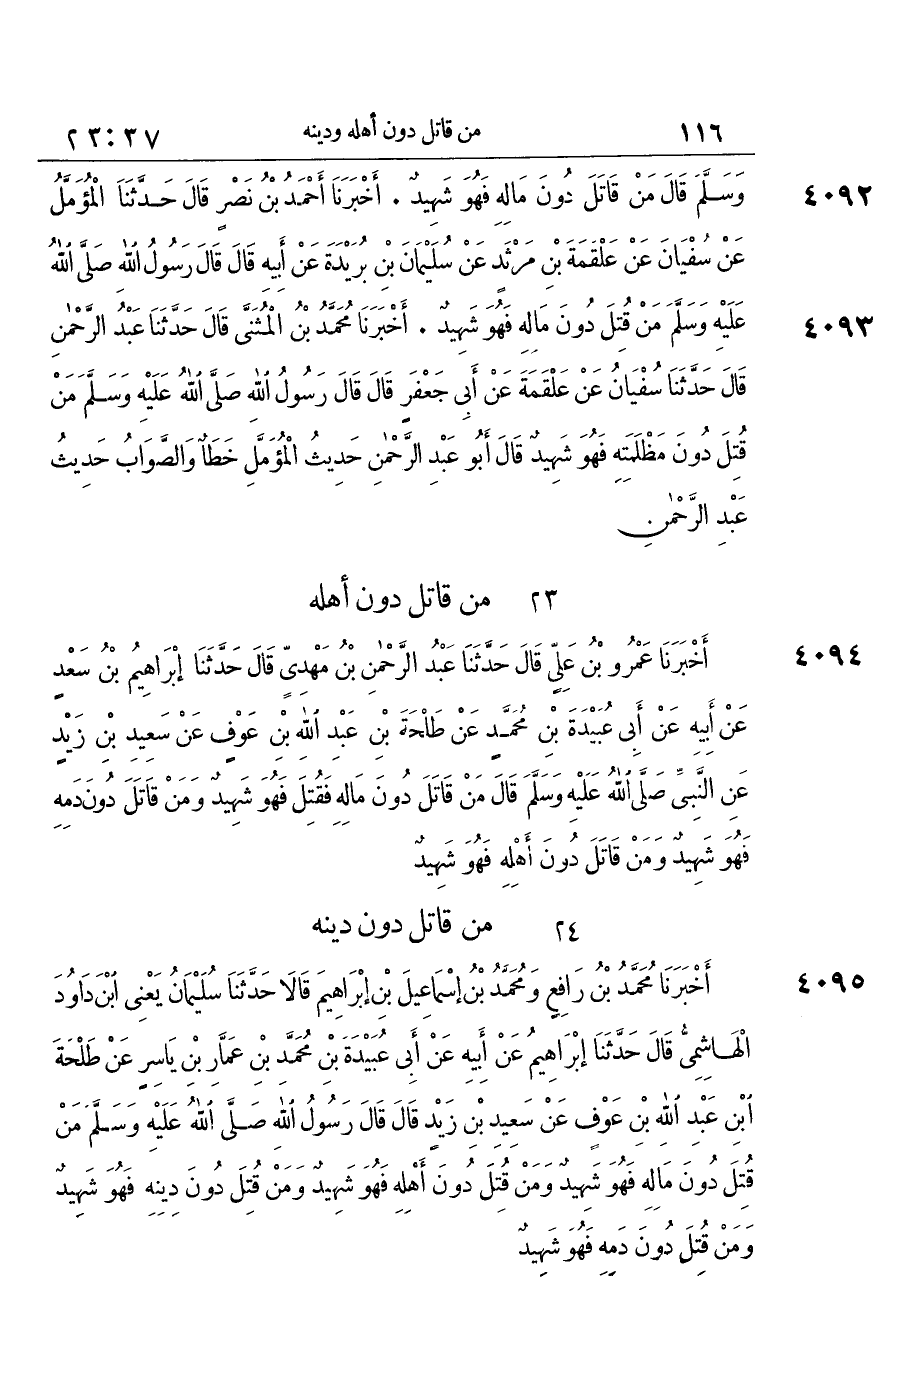 ١١٦ من قاتل دون أهله ودينه ٣٧:٢٣
٤٠٩٢ وَسَلَّمَ قَالَ مَنْ قَاتَلَ دُونَ مَالِهِ فَهُوَ شَهِيدٌ . أَخْبَرَنَا أَحْمَدُ بْنُ نَصْرٍ قَالَ حَدَّثَنَا الْمُؤَمَّلُ
عَنْ سُفْيَانَ عَنْ عَلْقَمَةَ بْنِ مَرْثَدٍ عَنْ سُلَيْمَانَ بْنِ بُرَيْدَةَ عَنْ أَبِيهِ قَالَ قَالَ رَسُولُ اللهِ صَلَّى اللهُ
٤٠٩٣ عَلَيْهِ وَسَلَّمَ مَنْ قُتِلَ دُونَ مَالِهِ فَهُوَ شَهِيدٌ . أَخْبَرَنَا مُحَمَّدُ بْنُ الْمُثَنَّى قَالَ حَدَّثَنَا عَبْدُ الرَّحْمٰنِ
قَالَ حَدَّثَنَا سُفْيَانُ عَنْ عَلْقَمَةَ عَنْ أَبِى جَعْفَرٍ قَالَ قَالَ رَسُولُ اللهِ صَلَّى اللهُ عَلَيْهِ وَسَلَّمَ مَنْ
قُتِلَ دُونَ مَظْلَمَتِهِ فَهُوَ شَهِيدٌ قَالَ أَبُو عَبْدِ الرَّحْمٰنِ حَدِيثُ الْمُؤَمَّلِ خَطَأٌ وَالصَّوَابُ حَدِيثُ
عَبْدِ الرَّحْمٰنِ
٢٣ من قاتل دون أهله
٤٠٩٤ أَخْبَرَنَا عَمْرُو بْنُ عَلِيٍّ قَالَ حَدَّثَنَا عَبْدُ الرَّحْمٰنِ بْنُ مَهْدِيٍّ قَالَ حَدَّثَنَا إِبْرَاهِيمُ بْنُ سَعْدٍ
عَنْ أَبِيهِ عَنْ أَبِى عُبَيْدَةَ بْنِ مُحَمَّدٍ عَنْ طَلْحَةَ بْنِ عَبْدِ اللهِ بْنِ عَوْفٍ عَنْ سَعِيدِ بْنِ زَيْدٍ
عَنِ النَّبِىِّ صَلَّى اللهُ عَلَيْهِ وَسَلَّمَ قَالَ مَنْ قَاتَلَ دُونَ مَالِهِ فَقُتِلَ فَهُوَ شَهِيدٌ وَمَنْ قَاتَلَ دُونَ دَمِهِ
فَهُوَ شَهِيدٌ وَمَنْ قَاتَلَ دُونَ أَهْلِهِ فَهُوَ شَهِيدٌ
٢٤ من قاتل دون دينه
٤٠٩٥ أَخْبَرَنَا مُحَمَّدُ بْنُ رَافِعٍ وَمُحَمَّدُ بْنُ إِسْمَاعِيلَ بْنِ إِبْرَاهِيمَ قَالَا حَدَّثَنَا سُلَيْمَانُ يَعْنِى ابْنَ دَاوُدَ
الْهَاشِمِىُّ قَالَ حَدَّثَنَا إِبْرَاهِيمُ عَنْ أَبِيهِ عَنْ أَبِى عُبَيْدَةَ بْنِ مُحَمَّدِ بْنِ عَمَّارِ بْنِ يَاسِرٍ عَنْ طَلْحَةَ
ابْنِ عَبْدِ اللهِ بْنِ عَوْفٍ عَنْ سَعِيدِ بْنِ زَيْدٍ قَالَ قَالَ رَسُولُ اللهِ صَلَّى اللهُ عَلَيْهِ وَسَلَّمَ مَنْ
قُتِلَ دُونَ مَالِهِ فَهُوَ شَهِيدٌ وَمَنْ قُتِلَ دُونَ أَهْلِهِ فَهُوَ شَهِيدٌ وَمَنْ قُتِلَ دُونَ دِينِهِ فَهُوَ شَهِيدٌ
وَمَنْ قُتِلَ دُونَ دَمِهِ فَهُوَ شَهِيدٌ